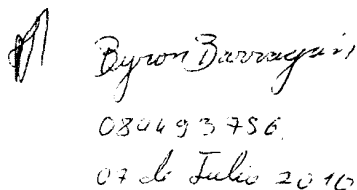 Byron Barragán
084493756
07 de Julio 2010